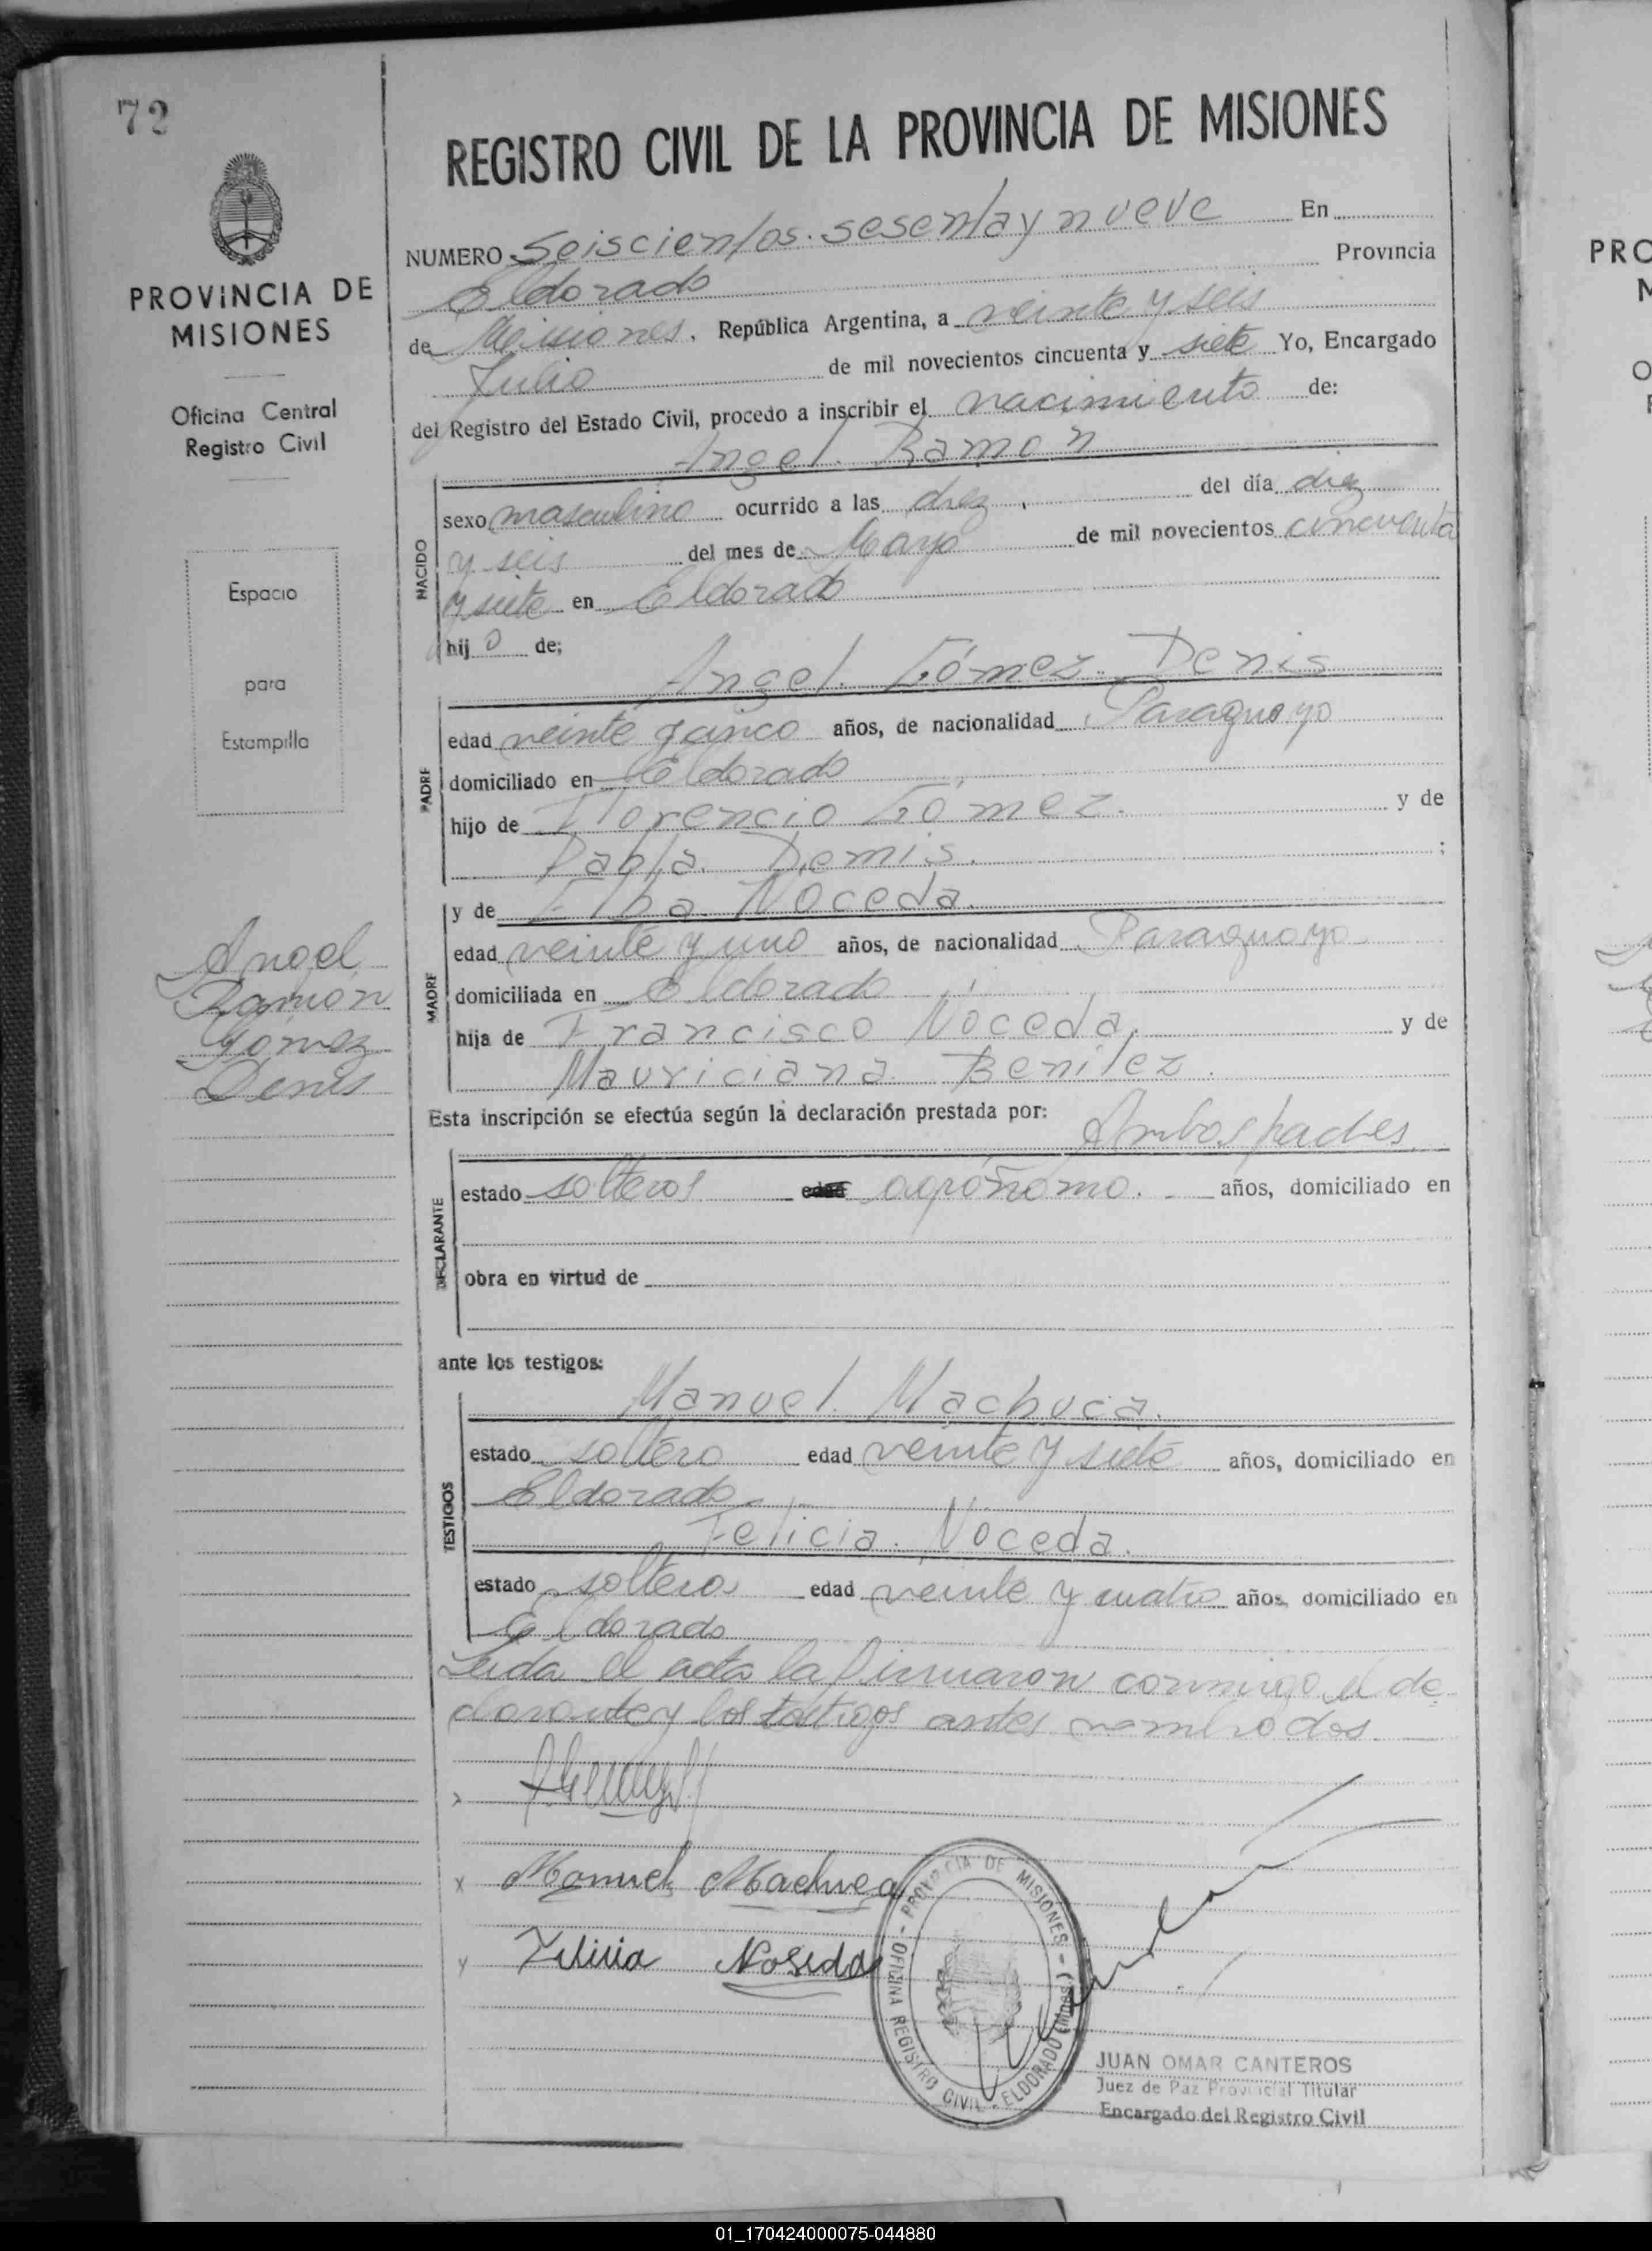 72
REGISTRO CIVIL DE LA PROVINCIA DE MISIONES
PROVINCIA DE
MISIONES
Oficina Central
Registro Civil
Espacio
para
Estampilla
Angel
Ramón
Gómez
Denis
NUMERO Seiscientos sesenta y nueve En
Eldorado Provincia
de Misiones. República Argentina, a veinte y seis
Julio de mil novecientos cincuenta y siete Yo, Encargado
del Registro del Estado Civil, procedo a inscribir el nacimiento de:
Angel Ramon
NACIDO
sexo masculino ocurrido a las diez del día diez
y seis del mes de Mayo de mil novecientos cincuenta
y siete en Eldorado
hijo de;
Angel Gómez Denis
PADRE
edad veinte y cinco años, de nacionalidad Paraguayo
domiciliado en Eldorado
hijo de Florencio Gómez. y de
Pabla Demis. ;
MADRE
y de Elba Noceda.
edad veinte y uno años, de nacionalidad Paraguayo
domiciliada en Eldorado
hija de Francisco Noceda, y de
Mauriciana Benitez.
Esta inscripción se efectúa según la declaración prestada por: Ambos padres
DECLARANTE
estado solteros edad agrónomo. años, domiciliado en
obra en virtud de
ante los testigos:
Manuel Machuca.
TESTIGOS
estado soltero edad veinte y siete años, domiciliado en
Eldorado
Felicia Noceda.
estado soltera edad veinte y cuatro años, domiciliado en
Eldorado
Leida el acta la firmaron conmigo el de
clarante y los testigos antes nombrados
x Manuel Machuca
Felicia Noseda
PROVINCIA DE MISIONES - (Mnes.)
OFICINA REGISTRO CIVIL - ELDORADO
JUAN OMAR CANTEROS
Juez de Paz Provincial Titular
Encargado del Registro Civil
PRO
01_170424000075-044880